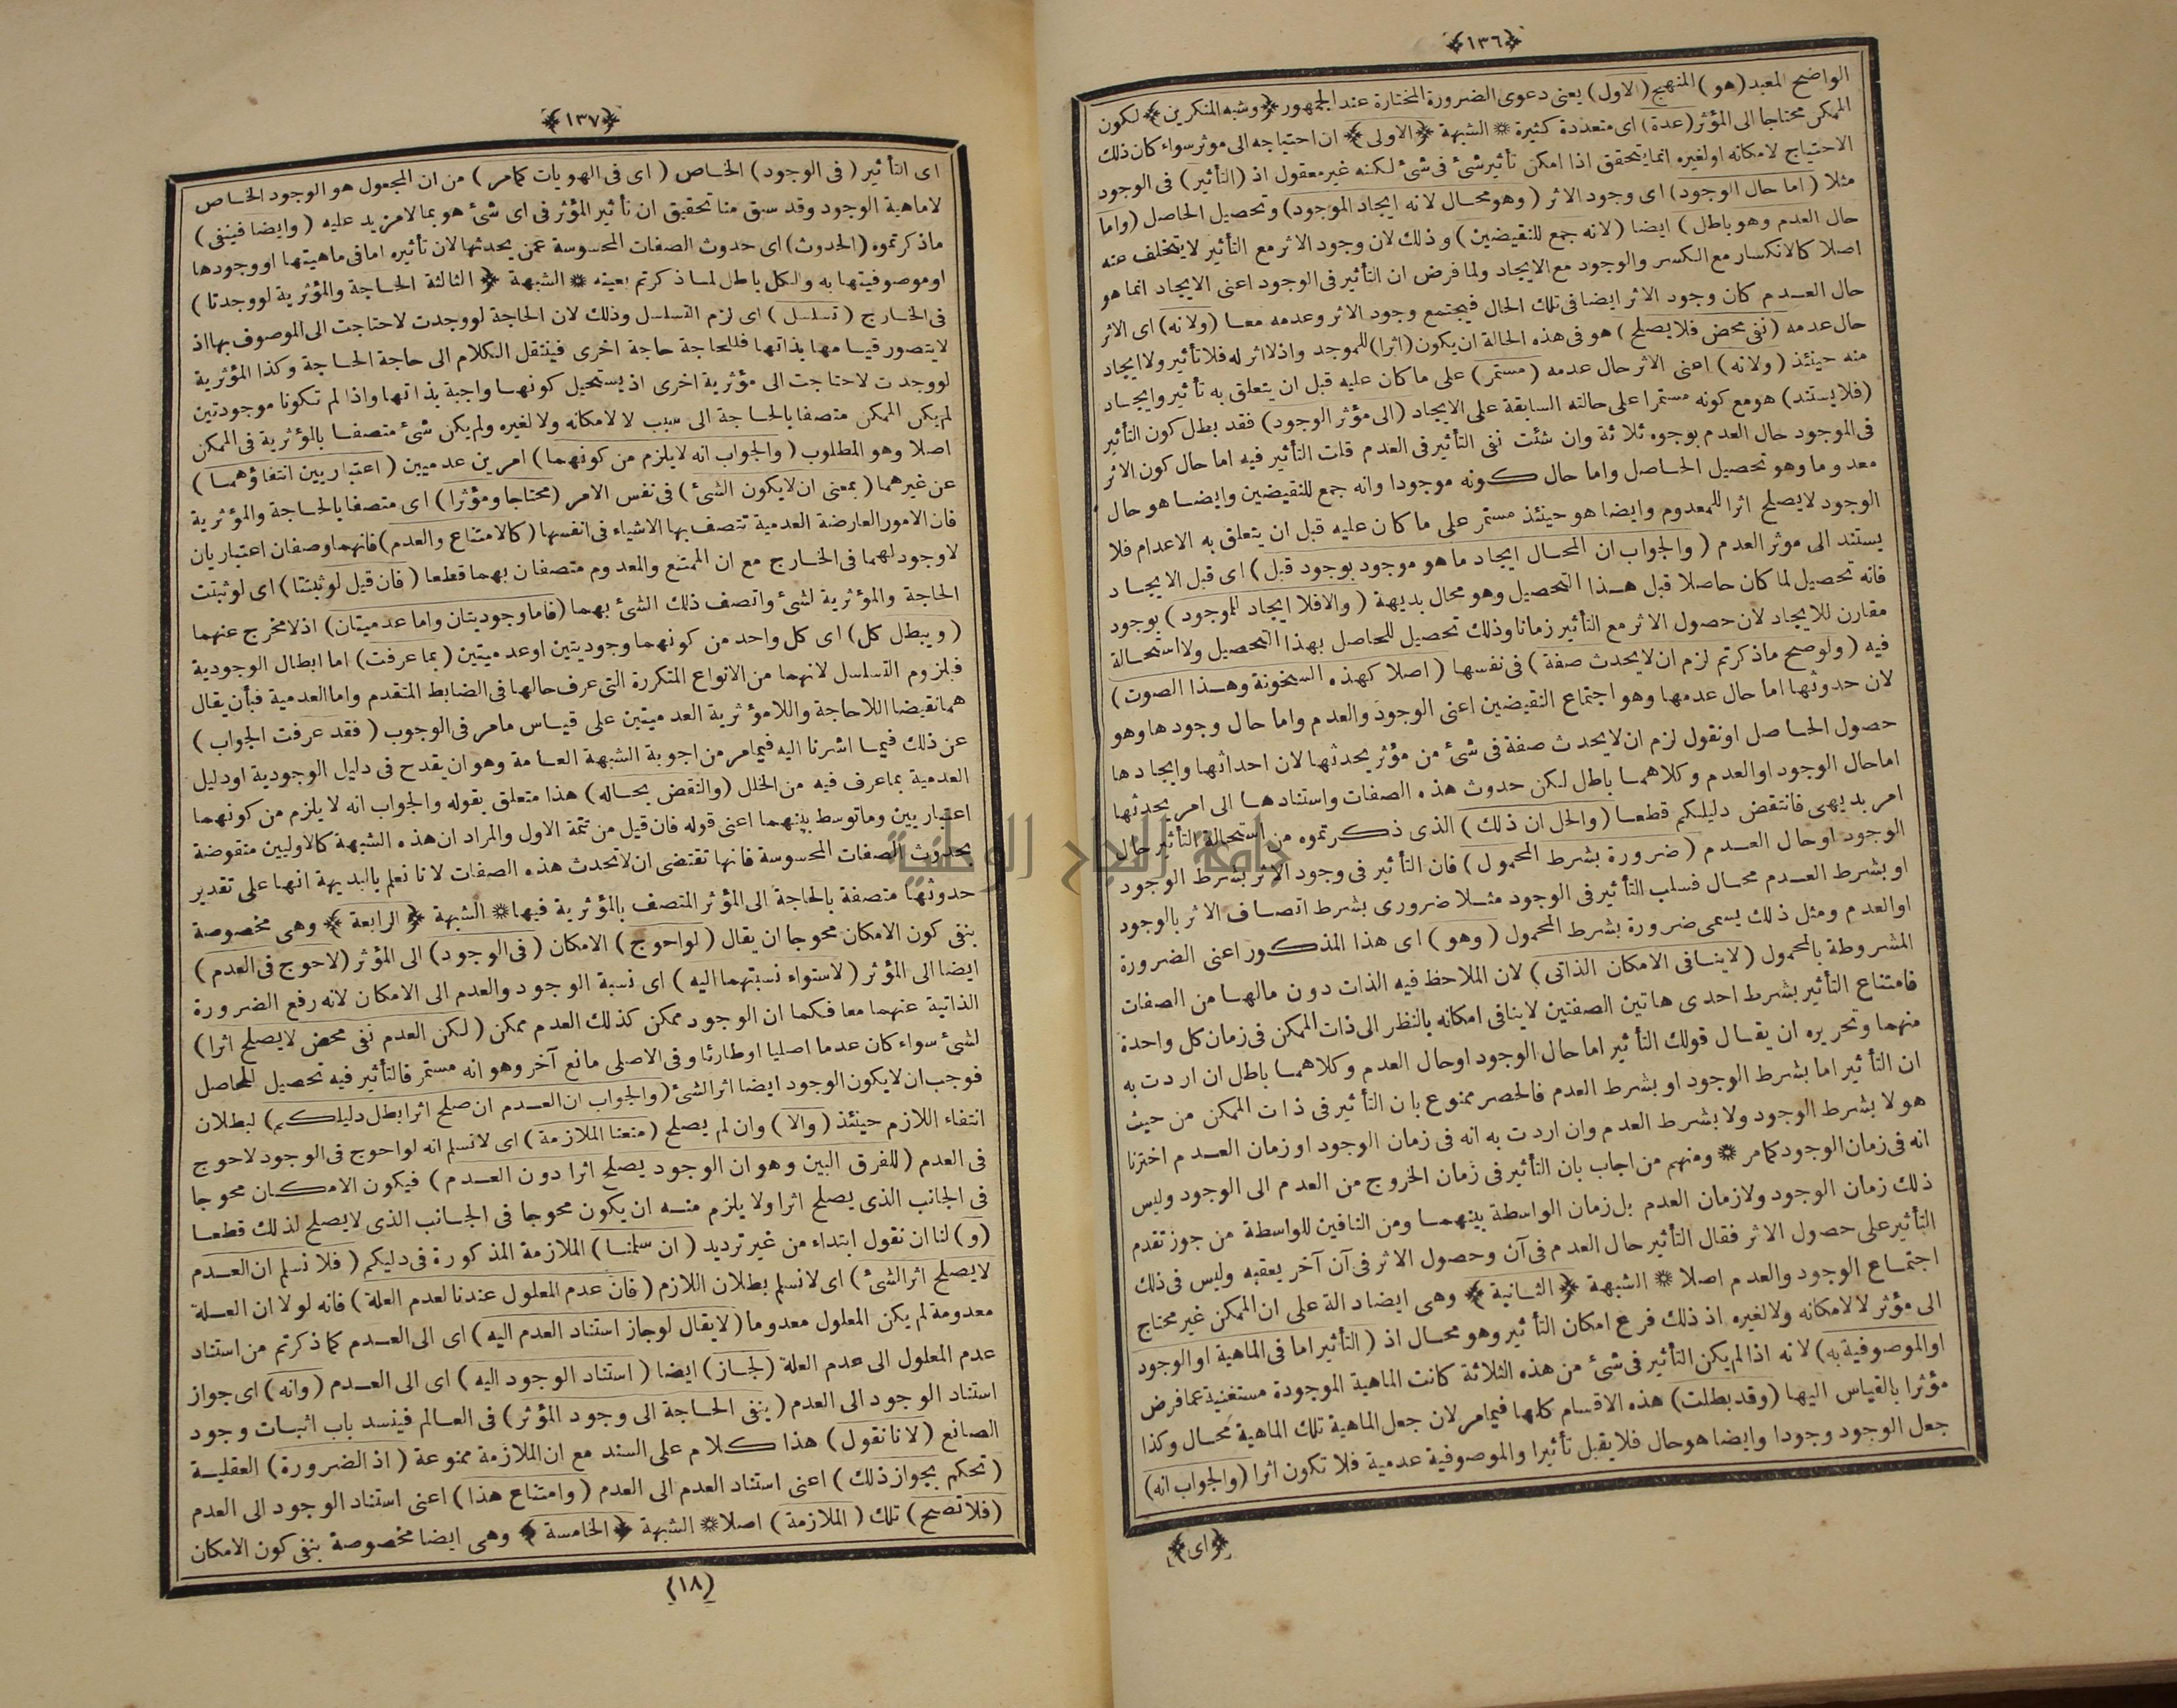 ﴿١٣٦﴾
الواضح المعبد (هو) المنهج (الاول) يعنى دعوى الضرورة المختارة عند الجمهور ﴿وشبه المنكرين﴾ لكون
الممكن محتاجا الى المؤثر (عدة) اى متعددة كثيرة * الشبهة ﴿الاولى﴾ ان احتياجه الى موثر سواء كان ذلك
الاحتياج لامكانه او لغيره انما يتحقق اذا امكن تأثير شئ فى شئ لكنه غير معقول اذ (التأثير) فى الوجود
مثلا (اما حال الوجود) اى وجود الاثر (وهو محال لانه ايجاد الموجود) وتحصيل الحاصل (واما
حال العدم وهو باطل) ايضا (لانه جمع للنقيضين) وذلك لان وجود الاثر مع التأثير لا يتخلف عنه
اصلا كالانكسار مع الكسر والوجود مع الايجاد ولما فرض ان التأثير فى الوجود اعنى الايجاد انما هو
حال العدم كان وجود الاثر ايضا فى تلك الحال فيجتمع وجود الاثر وعدمه معا (ولانه) اى الاثر
حال عدمه (نفى محض فلا يصلح) هو فى هذه الحالة ان يكون (اثرا) للموجد واذ لا اثر له فلا تأثير ولا ايجاد
منه حينئذ (ولانه) اعنى الاثر حال عدمه (مستمر) على ما كان عليه قبل ان يتعلق به تأثير وايجاد
(فلا يستند) هو مع كونه مستمرا على حالته السابقة على الايجاد (الى مؤثر الوجود) فقد بطل كون التأثير
فى الموجود حال العدم بوجوه ثلاثة وان شئت نفى التأثير فى العدم قلت التأثير فيه اما حال كون الاثر
معدوما وهو تحصيل الحاصل واما حال كونه موجودا وانه جمع للنقيضين وايضا هو حال
الوجود لا يصلح اثرا للمعدوم وايضا هو حينئذ مستمر على ما كان عليه قبل ان يتعلق به الاعدام فلا
يستند الى موثر العدم (والجواب ان المحال ايجاد ما هو موجود بوجود قبل) اى قبل الايجاد
فانه تحصيل لما كان حاصلا قبل هذا التحصيل وهو محال بديهة (والا فلا ايجاد للموجود) بوجود
مقارن للايجاد لان حصول الاثر مع التأثير زمانا وذلك تحصيل للحاصل بهذا التحصيل ولا استحالة
فيه (ولو صح ما ذكرتم لزم ان لا يحدث صفة) فى نفسها (اصلا كهذه السخونة وهذا الصوت)
لان حدوثها اما حال عدمها وهو اجتماع النقيضين اعنى الوجود والعدم واما حال وجودها وهو
حصول الحاصل او نقول لزم ان لا يحدث صفة فى شئ من مؤثر يحدثها لان احداثها وايجادها
اما حال الوجود او العدم وكلاهما باطل لكن حدوث هذه الصفات واستنادها الى امر يحدثها
امر بديهى فانتقض دليلكم قطعا (والحل ان ذلك) الذى ذكرتموه من استحالة التأثير حال
الوجود او حال العدم (ضرورة بشرط المحمول) فان التأثير فى وجود الاثر بشرط الوجود
او بشرط العدم محال فسلب التأثير فى الوجود مثلا ضرورى بشرط اتصاف الاثر بالوجود
او العدم ومثل ذلك يسمى ضرورة بشرط المحمول (وهو) اى هذا المذكور اعنى الضرورة
المشروطة بالمحمول (لا ينافى الامكان الذاتى) لان الملاحظ فيه الذات دون مالها من الصفات
فامتناع التأثير بشرط احدى هاتين الصفتين لا ينافى امكانه بالنظر الى ذات الممكن فى زمان كل واحدة
منهما وتحريره ان يقال قولك التأثير اما حال الوجود او حال العدم وكلاهما باطل ان اردت به
ان التأثير اما بشرط الوجود او بشرط العدم فالحصر ممنوع بان التأثير فى ذات الممكن من حيث
هو لا بشرط الوجود ولا بشرط العدم وان اردت به انه فى زمان الوجود او زمان العدم اخترنا
انه فى زمان الوجود كما مر * ومنهم من اجاب بان التأثير فى زمان الخروج من العدم الى الوجود وليس
ذلك زمان الوجود ولا زمان العدم بل زمان الواسطة بينهما ومن النافين للواسطة من جوز تقدم
التأثير على حصول الاثر فقال التأثير حال العدم فى آن وحصول الاثر فى آن آخر يعقبه وليس فى ذلك
اجتماع الوجود والعدم اصلا * الشبهة ﴿الثانية﴾ وهى ايضا دالة على ان الممكن غير محتاج
الى مؤثر لا لامكانه ولا لغيره اذ ذلك فرع امكان التأثير وهو محال اذ (التأثير اما فى الماهية او الوجود
او الموصوفية به) لانه اذا لم يكن التأثير فى شئ من هذه الثلاثة كانت الماهية الموجودة مستغنية عما فرض
مؤثرا بالقياس اليها (وقد بطلت) هذه الاقسام كلها فيما مر لان جعل الماهية تلك الماهية محال وكذا
جعل الوجود وجودا وايضا هو حال فلا يقبل تأثيرا والموصوفية عدمية فلا تكون اثرا (والجواب انه)
﴿اى﴾
﴿١٣٧﴾
اى التأثير (فى الوجود) الخاص (اى فى الهويات كما مر) من ان المجعول هو الوجود الخاص
لا ماهية الوجود وقد سبق منا تحقيق ان تأثير المؤثر فى اى شئ هو بما لا مزيد عليه (وايضا فينفى)
ما ذكرتموه (الحدوث) اى حدوث الصفات المحسوسة عمن يحدثها لان تأثيره اما فى ماهيتها او وجودها
او موصوفيتها به والكل باطل لما ذكرتم بعينه * الشبهة ﴿الثالثة الحاجة والمؤثرية لو وجدتا)
فى الخارج (تسلسل) اى لزم التسلسل وذلك لان الحاجة لو وجدت لاحتاجت الى الموصوف بها اذ
لا يتصور قيامها بذاتها فللحاجة حاجة اخرى فينتقل الكلام الى حاجة الحاجة وكذا المؤثرية
لو وجدت لاحتاجت الى مؤثرية اخرى اذ يستحيل كونها واجبة بذاتها واذا لم تكونا موجودتين
لم يكن الممكن متصفا بالحاجة الى سبب لا لامكانه ولا لغيره ولم يكن شئ متصفا بالمؤثرية فى الممكن
اصلا وهو المطلوب (والجواب انه لا يلزم من كونهما) امرين عدميين (اعتباريين انتفاؤهما)
عن غيرهما (بمعنى ان لا يكون الشئ) فى نفس الامر (محتاجا ومؤثرا) اى متصفا بالحاجة والمؤثرية
فان الامور العارضة العدمية تتصف بها الاشياء فى انفسها (كالامتناع والعدم) فانهما وصفان اعتباريان
لا وجود لهما فى الخارج مع ان الممتنع والمعدوم متصفان بهما قطعا (فان قيل لو ثبتتا) اى لو ثبتت
الحاجة والمؤثرية لشئ واتصف ذلك الشئ بهما (فاما وجوديتان واما عدميتان) اذ لا مخرج عنهما
(ويبطل كل) اى كل واحد من كونهما وجوديتين او عدميتين (بما عرفت) اما ابطال الوجودية
فبلزوم التسلسل لانهما من الانواع المتكررة التى عرف حالها فى الضابط المتقدم واما العدمية فبأن يقال
هما نقيضا اللاحاجة واللامؤثرية العدميتين على قياس مامر فى الوجوب (فقد عرفت الجواب)
عن ذلك فيما اشرنا اليه فيما مر من اجوبة الشبهة العامة وهو ان يقدح فى دليل الوجودية او دليل
العدمية بما عرف فيه من الخلل (والنقض بحاله) هذا متعلق بقوله والجواب انه لا يلزم من كونهما
اعتباريين وما توسط بينهما اعنى قوله فان قيل من تتمة الاول والمراد ان هذه الشبهة كالاوليين منقوضة
بحدوث الصفات المحسوسة فانها تقتضى ان لا تحدث هذه الصفات لانا نعلم بالبديهة انها على تقدير
حدوثها متصفة بالحاجة الى المؤثر المتصف بالمؤثرية فيها * الشبهة ﴿الرابعة﴾ وهى مخصوصة
بنفى كون الامكان محوجا ان يقال (لو احوج) الامكان (فى الوجود) الى المؤثر (لاحوج فى العدم)
ايضا الى المؤثر (لاستواء نسبتهما اليه) اى نسبة الوجود والعدم الى الامكان لانه رفع الضرورة
الذاتية عنهما معا فكما ان الوجود ممكن كذلك العدم ممكن (لكن العدم نفى محض لا يصلح اثرا)
لشئ سواء كان عدما اصليا او طارئا وفى الاصلى مانع آخر وهو انه مستمر فالتأثير فيه تحصيل للحاصل
فوجب ان لا يكون الوجود ايضا اثر الشئ (والجواب ان العدم ان صلح اثرا بطل دليلكم) لبطلان
انتفاء اللازم حينئذ (والا) وان لم يصلح (منعنا الملازمة) اى لا نسلم انه لو احوج فى الوجود لاحوج
فى العدم (للفرق البين وهو ان الوجود يصلح اثرا دون العدم) فيكون الامكان محوجا
فى الجانب الذى يصلح اثرا ولا يلزم منه ان يكون محوجا فى الجانب الذى لا يصلح لذلك قطعا
(و) لنا ان نقول ابتداء من غير ترديد (ان سلمنا) الملازمة المذكورة فى دليكم (فلا نسلم ان العدم
لا يصلح اثر الشئ) اى لا نسلم بطلان اللازم (فان عدم المعلول عندنا لعدم العلة) فانه لولا ان العلة
معدومة لم يكن المعلول معدوما (لا يقال لو جاز استناد العدم اليه) اى الى العدم كما ذكرتم من استناد
عدم المعلول الى عدم العلة (لجاز) ايضا (استناد الوجود اليه) اى الى العدم (وانه) اى جواز
استناد الوجود الى العدم (ينفى الحاجة الى وجود المؤثر) فى العالم فينسد باب اثبات وجود
الصانع (لانا نقول) هذا كلام على السند مع ان الملازمة ممنوعة (اذ الضرورة) العقلية
(تحكم بجواز ذلك) اعنى استناد العدم الى العدم (وامتناع هذا) اعنى استناد الوجود الى العدم
(فلا تصح) تلك (الملازمة) اصلا * الشبهة ﴿الخامسة﴾ وهى ايضا مخصوصة بنفى كون الامكان
(١٨)
جامعة النجاح الوطنية